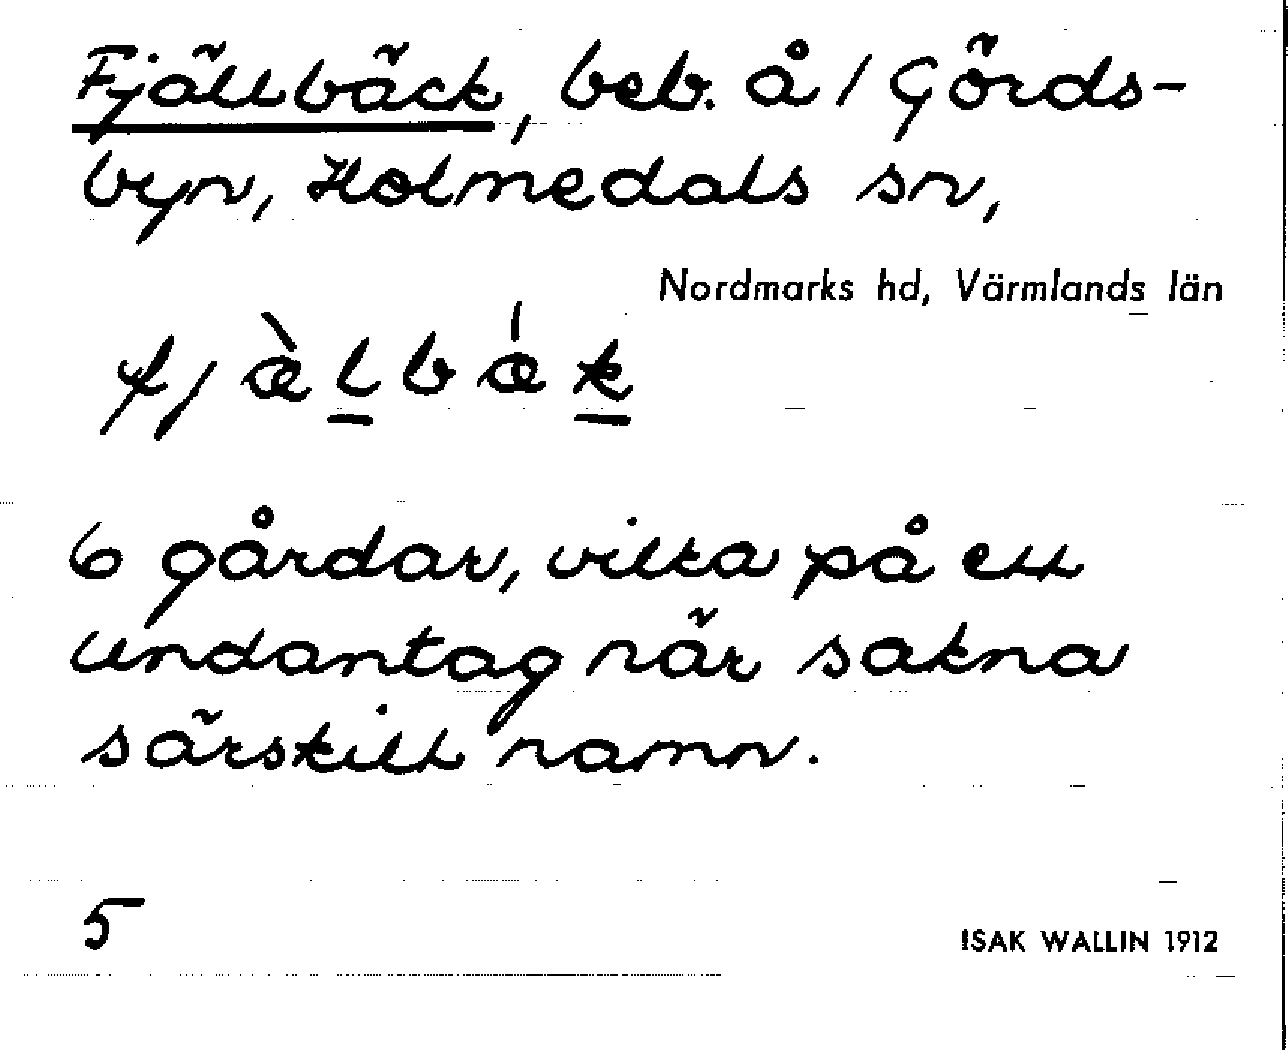 Fjällbäck, beb. å / Görds-
byn, Holmedals sn,
Nordmarks hd, Värmlands län
fjæ̀lbǽk
6 gårdar, vilka på ett
undantag när sakna
särskilt namn.
5
ISAK WALLIN 1912